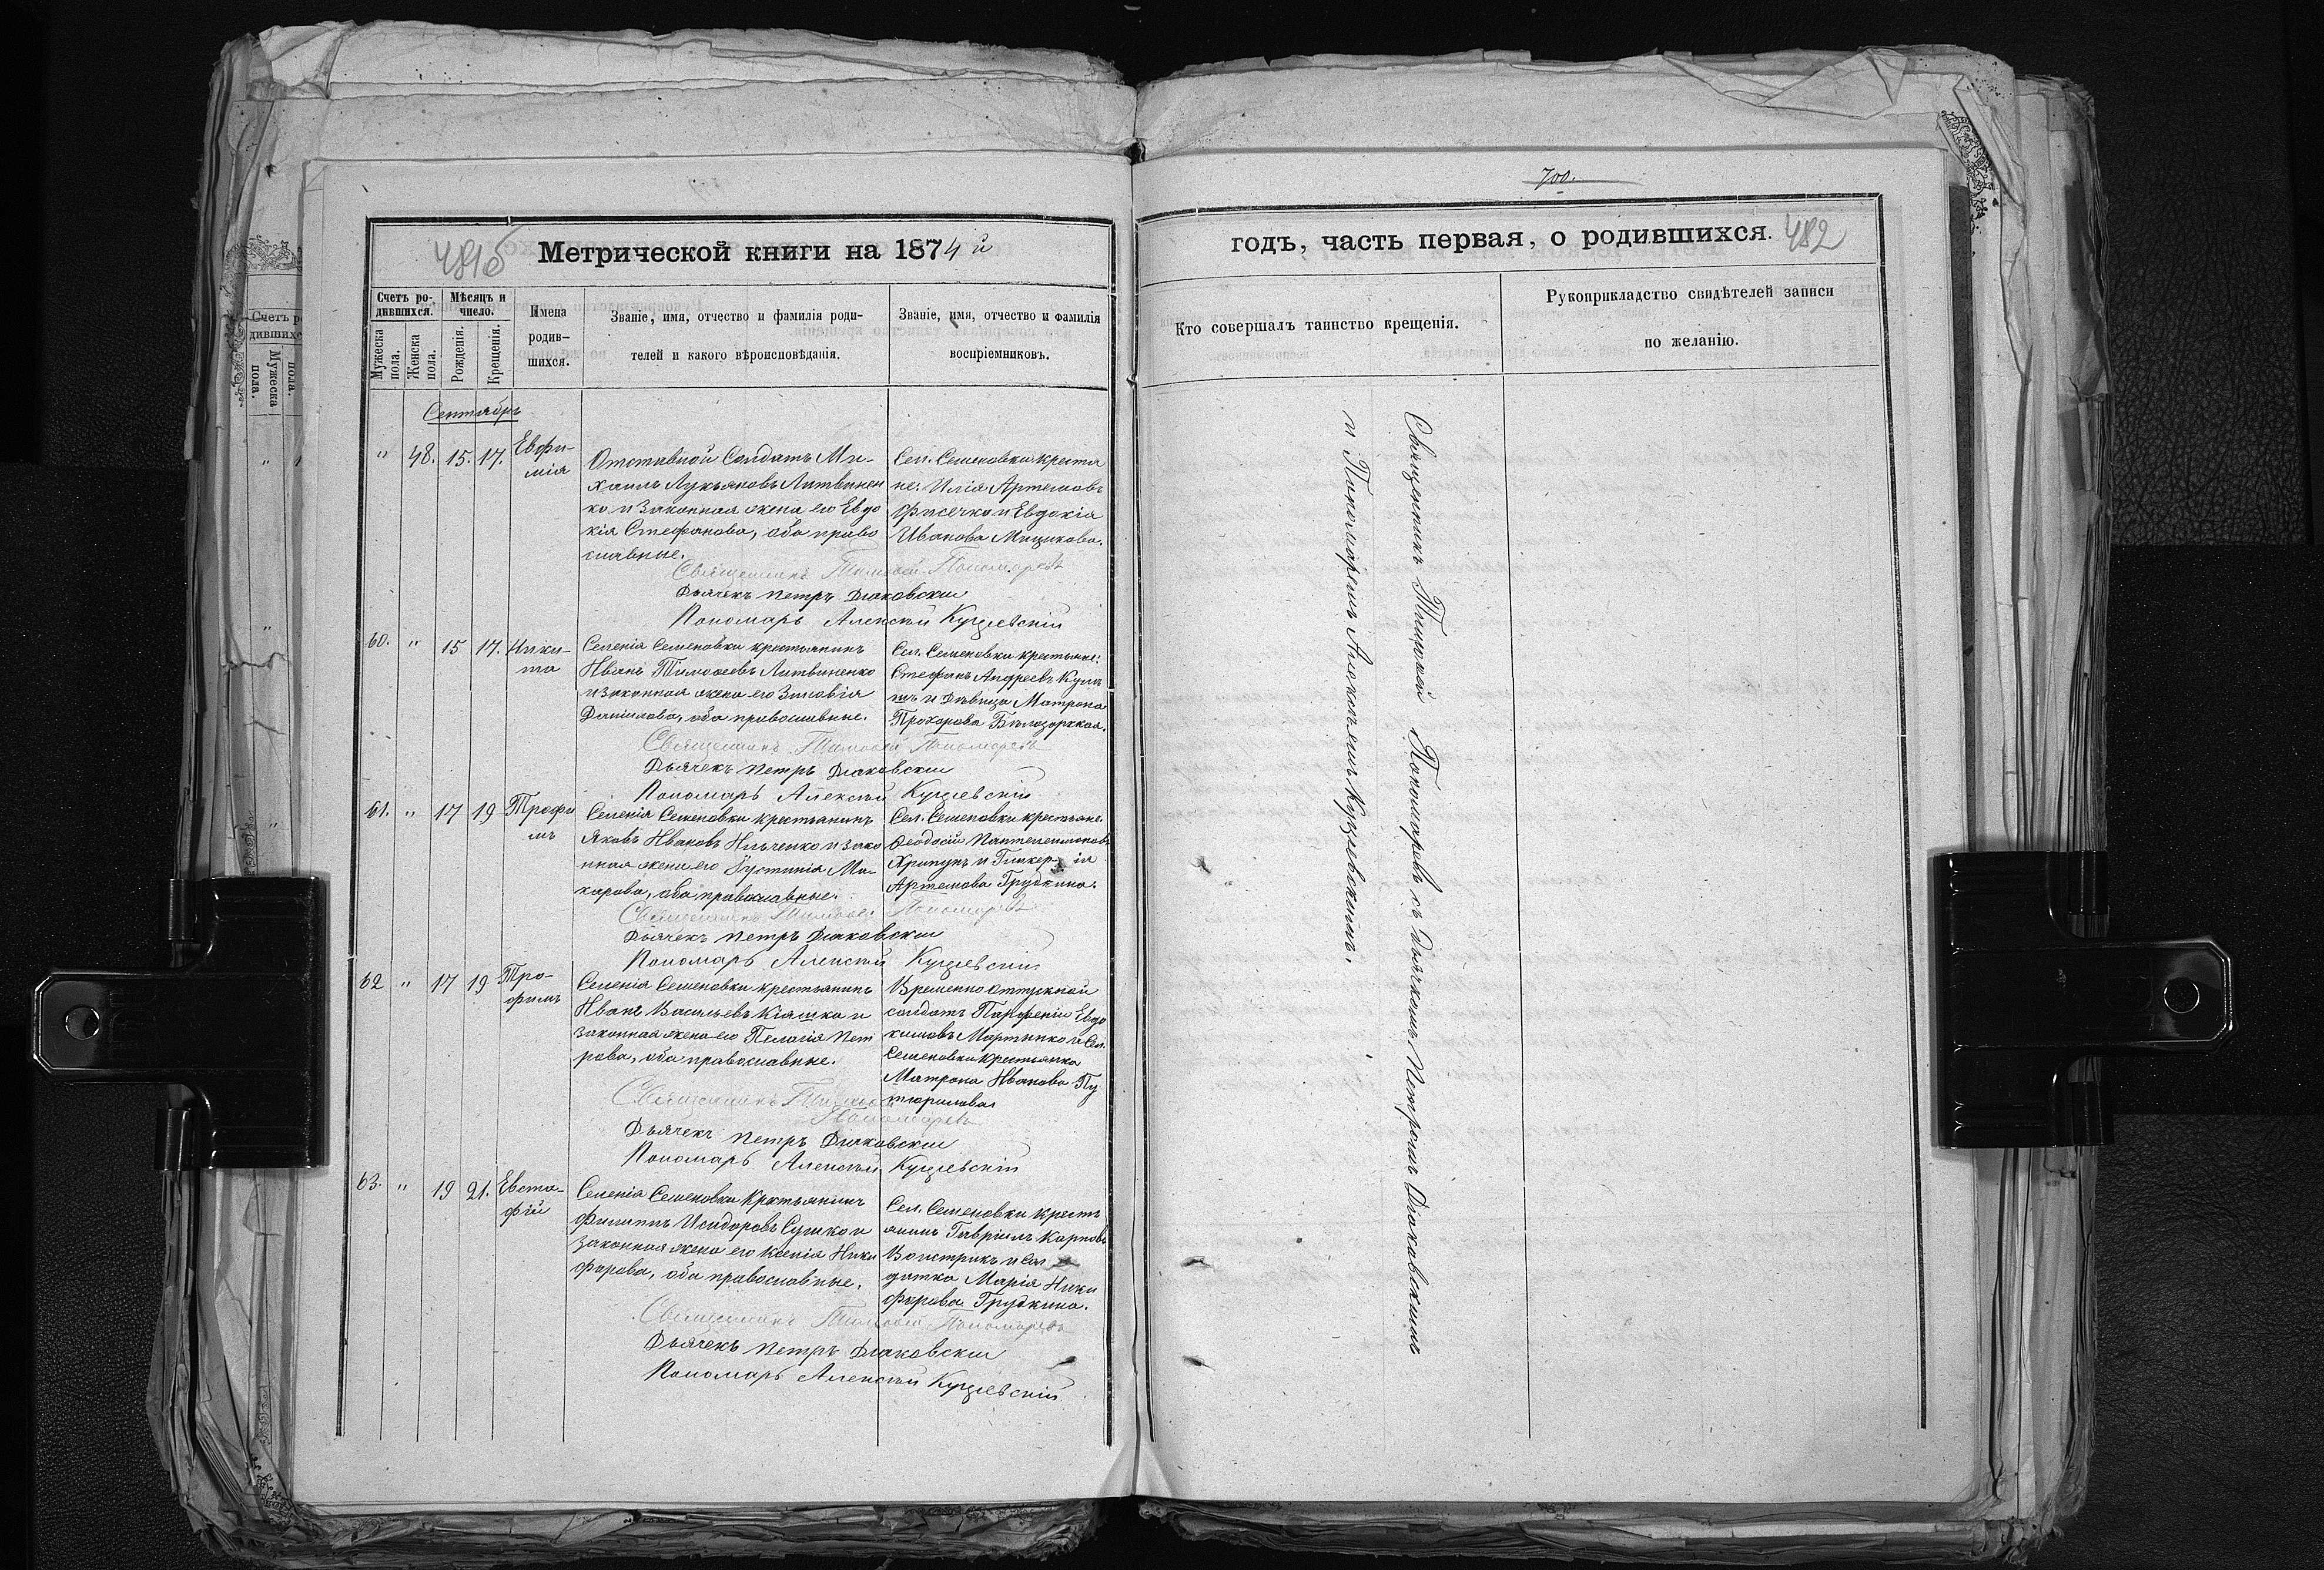 700.
481б
Метрической книги на 1874 й
годъ, часть первая, о родившихся.
482
Счетъ ро-
дившихся.
Мужеска
пола.
Женска
пола.
Мѣсяцъ и
число.
Рожденія.
Крещенія.
Имена
родив-
шихся.
Званіе, имя, отчество и фамилія роди-
телей и какого вѣроисповѣданія.
Званіе, имя, отчество и фамилія
воспріемниковъ.
Кто совершалъ таинство крещенія.
Рукоприкладство свидѣтелей записи
по желанію.
Сентябрь
" 48. 15. 17. Евфи-
мія
Отставной Солдатъ Ми-
хаилъ Лукьяновъ Литвинен
ко и законная жена его Евдо
кія Стефанова, оба право
славные.
Сел. Семеновки крестья
не: Илія Артемовъ
Фисечко и Евдокія
Иванова
Священникъ Тимоѳей Пономаревъ
Дьячекъ Петръ Діаковскій
Пономарь Алексѣй Кущевскій
60. " 15 17. Ники-
та
Селенія Семеновки крестьянинъ
Иванъ Тимоѳеевъ Литвиненко
и законная жена его Зиновія
Данилова, оба православные.
Сел. Семеновки крестьяне:
Стефанъ Андреевъ
и дѣвица Матрона
Прохорова Бѣлозорская.
Священникъ Тимоѳей Пономаревъ
Дьячекъ Петръ Діаковскій
Пономарь Алексѣй Кущевскій
61. " 17 19 Трофи
мъ
Селенія Семеновки крестьянинъ
Яковъ Ивановъ Ильченко и зако
нная жена его Іустинія Ма-
карова, оба православные.
Сел. Семеновки крестьяне.
Ѳеодосій Пантелеимоновъ
Хрипунъ и Гликерія
Артемова Грудкина.
Священникъ Тимоѳей Пономаревъ
Дьячекъ Петръ Діаковскій
Пономарь Алексѣй Кущевскій
62 " 17 19 Тро-
фимъ
Селенія Семеновки крестьянинъ
Иванъ Васильевъ Кіяшко и
законная жена его Пелагія Пет
рова, оба православные.
Временно отпускной
солдатъ Парфеній Евдо
кимовъ Мартынко и Сел.
Семеновки крестьянка
Матрона Иванова
Священникъ Тимоѳей
Пономаревъ
Дьячекъ Петръ Діаковскій
Пономарь Алексѣй Кущевскій
63. " 19 21. Евста-
фій
Селенія Семеновки Крестьянинъ
Филиппъ Исидоровъ Сушко и
законная жена его Ксенія Ники
форова, оба православные.
Сел. Семеновки кресть
янинъ Гавріилъ Карповъ
Вонстрикъ и сол
датка Марія Ники
форова Грудкина.
Священникъ Тимоѳей Пономаревъ
Дьячекъ Петръ Діаковскій
Пономарь Алексѣй Кущевскій
Священникъ Тимоѳей Пономаревъ съ дьячкомъ Петромъ Діаковскимъ
и Пономаремъ Алексѣемъ Кущевскимъ.